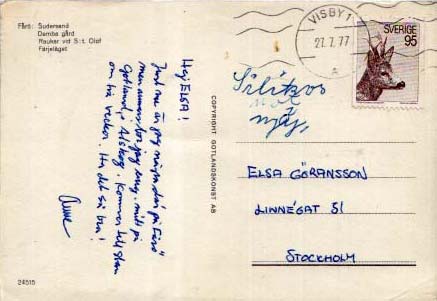 Fårö: Sudersand
Damba gård
Raukar vid S:t Olof
Färjeläget
Hej ELSA!
Just nu är jag några dar på Fårö
men annars bor jag mitt på
Gotland, i Alskog. Kommer till sthlm
om tre veckor. Ha det så bra!
24515
COPYRIGHT GOTLANDSKONST AB
VISBY 1
27.7.77
SVERIGE
95
ELSA GÖRANSSON
LINNÉGAT 51
STOCKHOLM